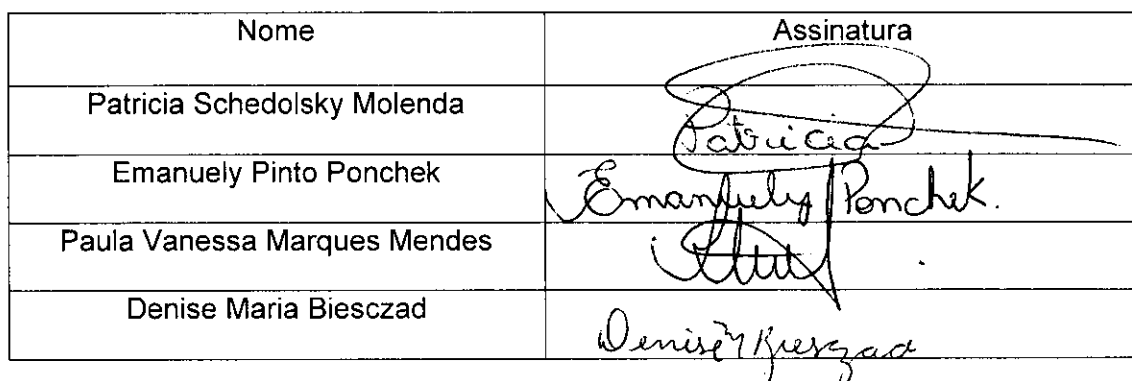 Nome Assinatura
Patricia Schedolsky Molenda Patricia
Emanuely Pinto Ponchek Emanuely Ponchek.
Paula Vanessa Marques Mendes
Denise Maria Biesczad Denise M Biesczad